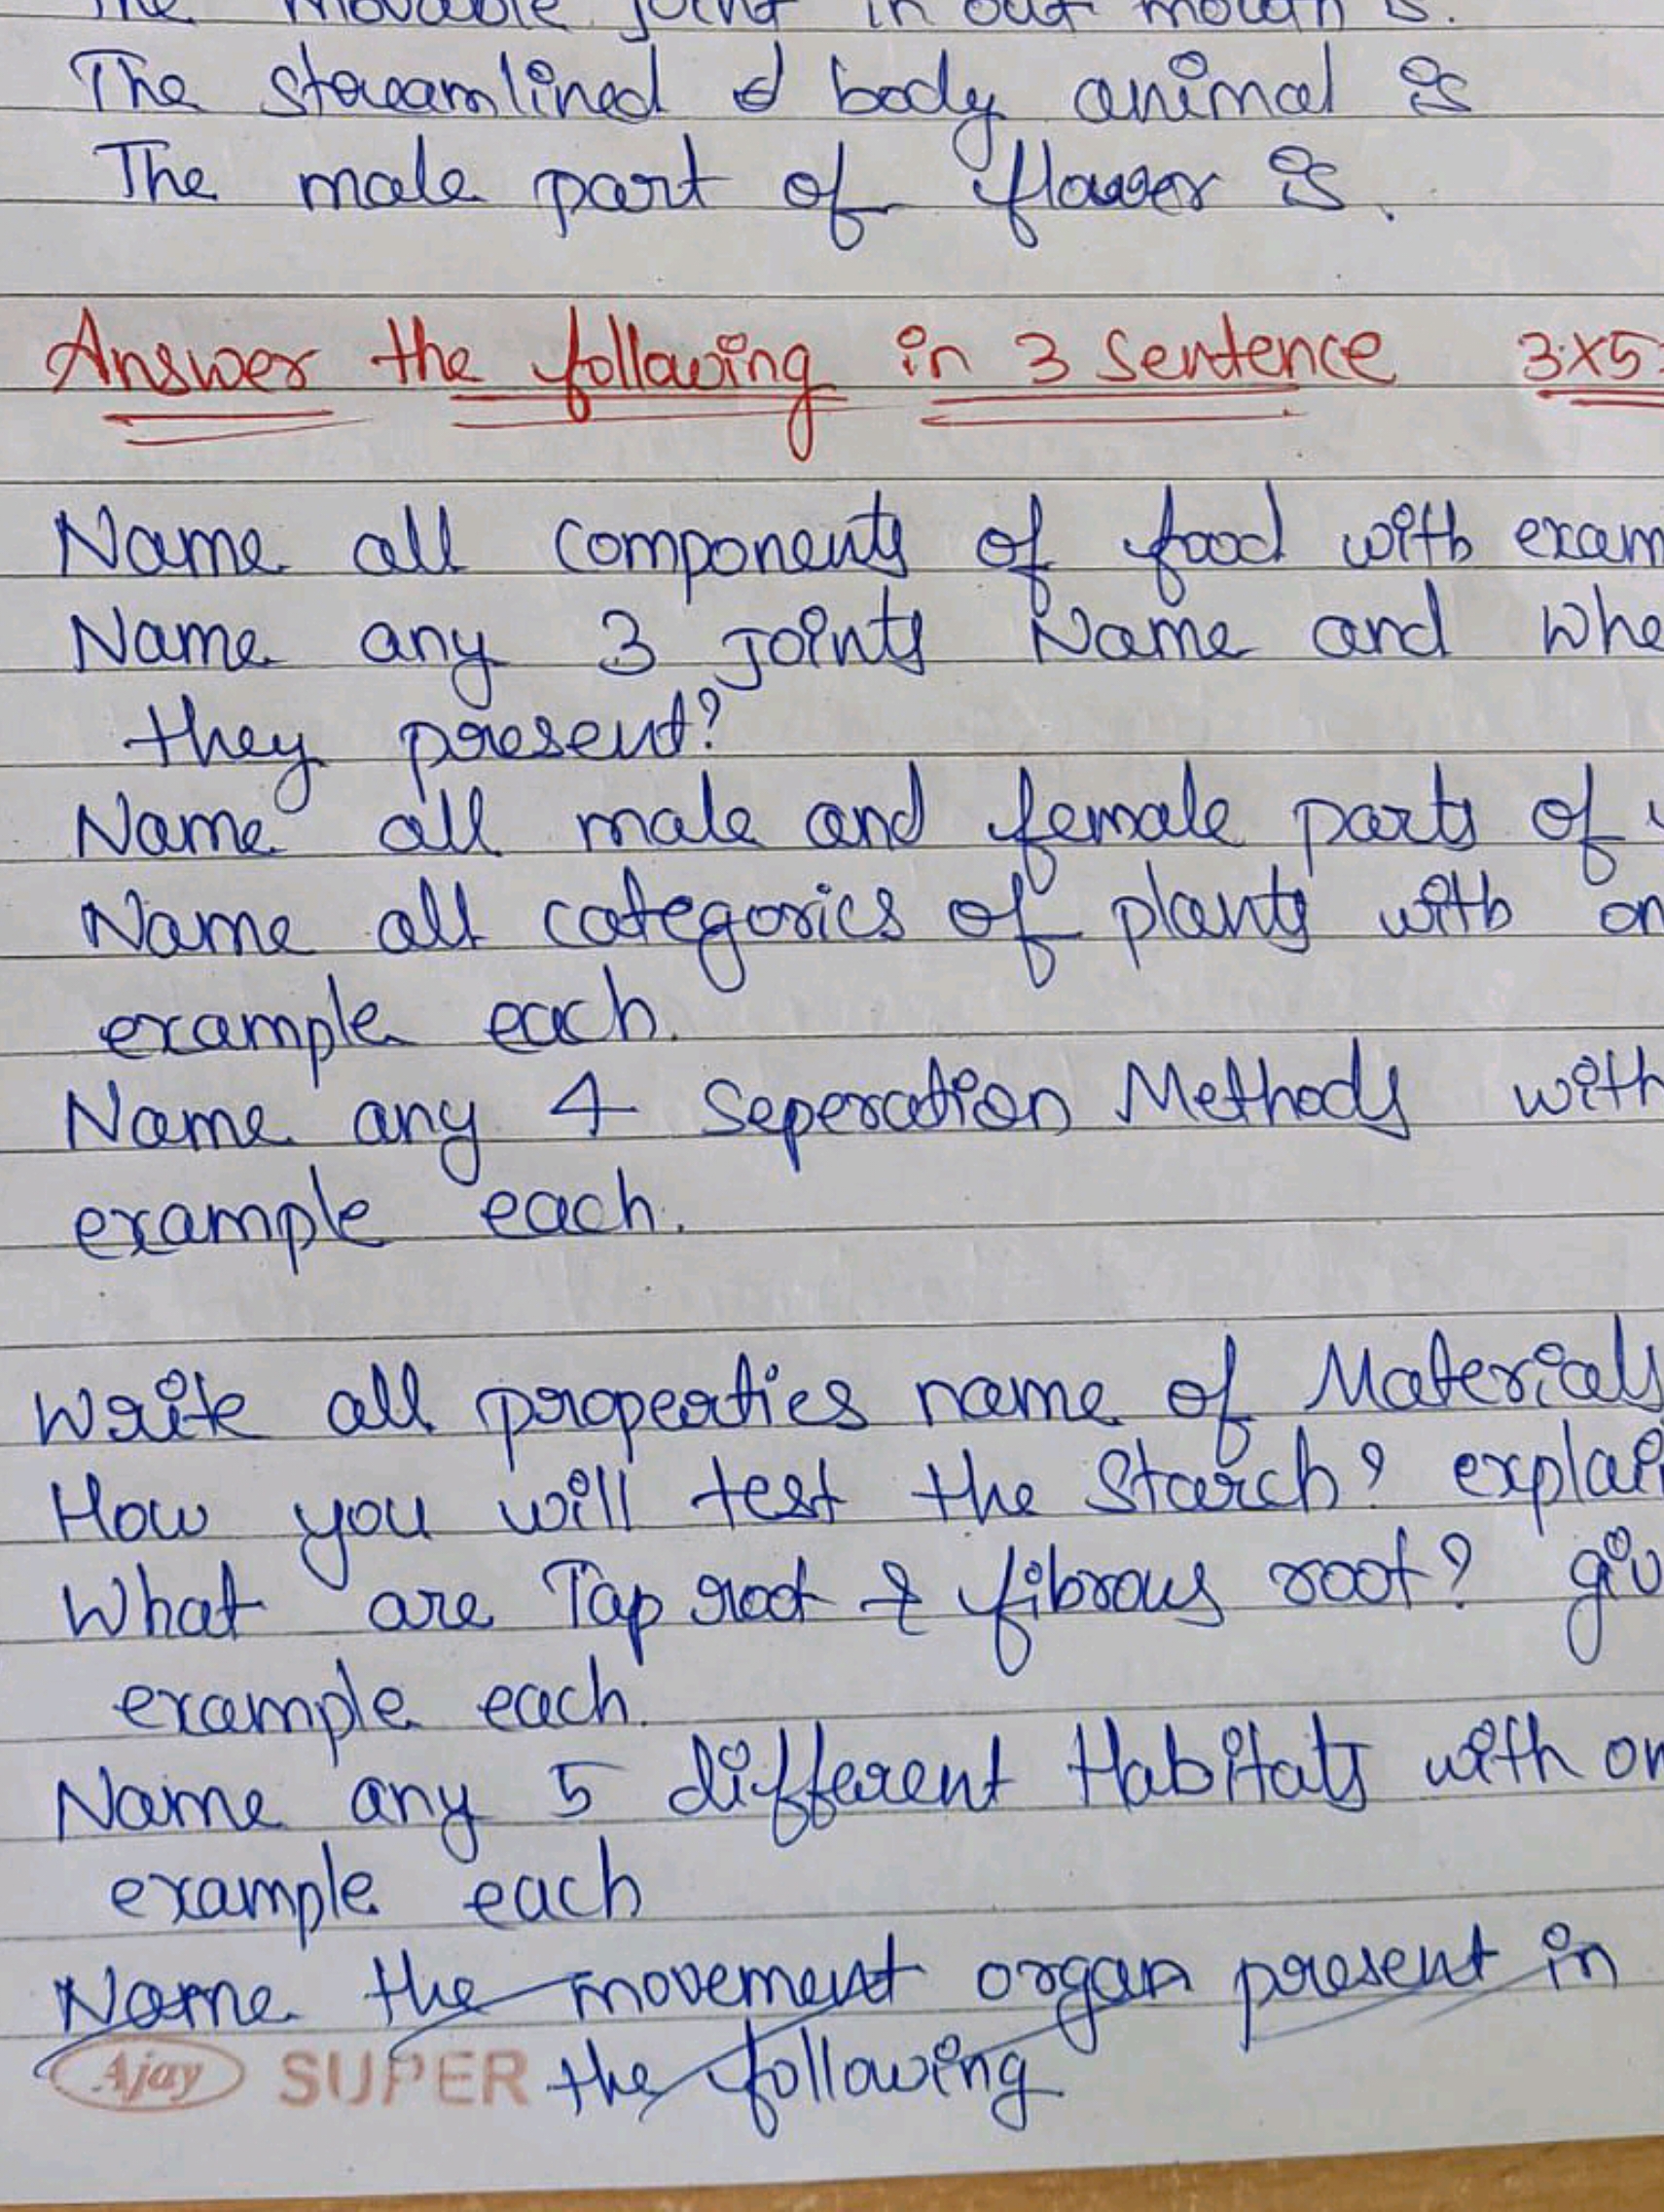 The movable joint in our mouth is.
The streamlined body animal is
The male part of flower is.
Answer the following in 3 Sentence 3x5
Name all components of food with exam
Name any 3 joints Name and whe
they present?
Name all male and female parts of
Name all categories of plants with on
example each.
Name any 4 Seperation Methods with
example each.
Write all properties name of Materials
How you will test the Starch? explai
What are Tap root & fibrous root? giv
example each.
Name any 5 different Habitats with on
example each
Name the movement organ present in
the following
Ajay SUPER